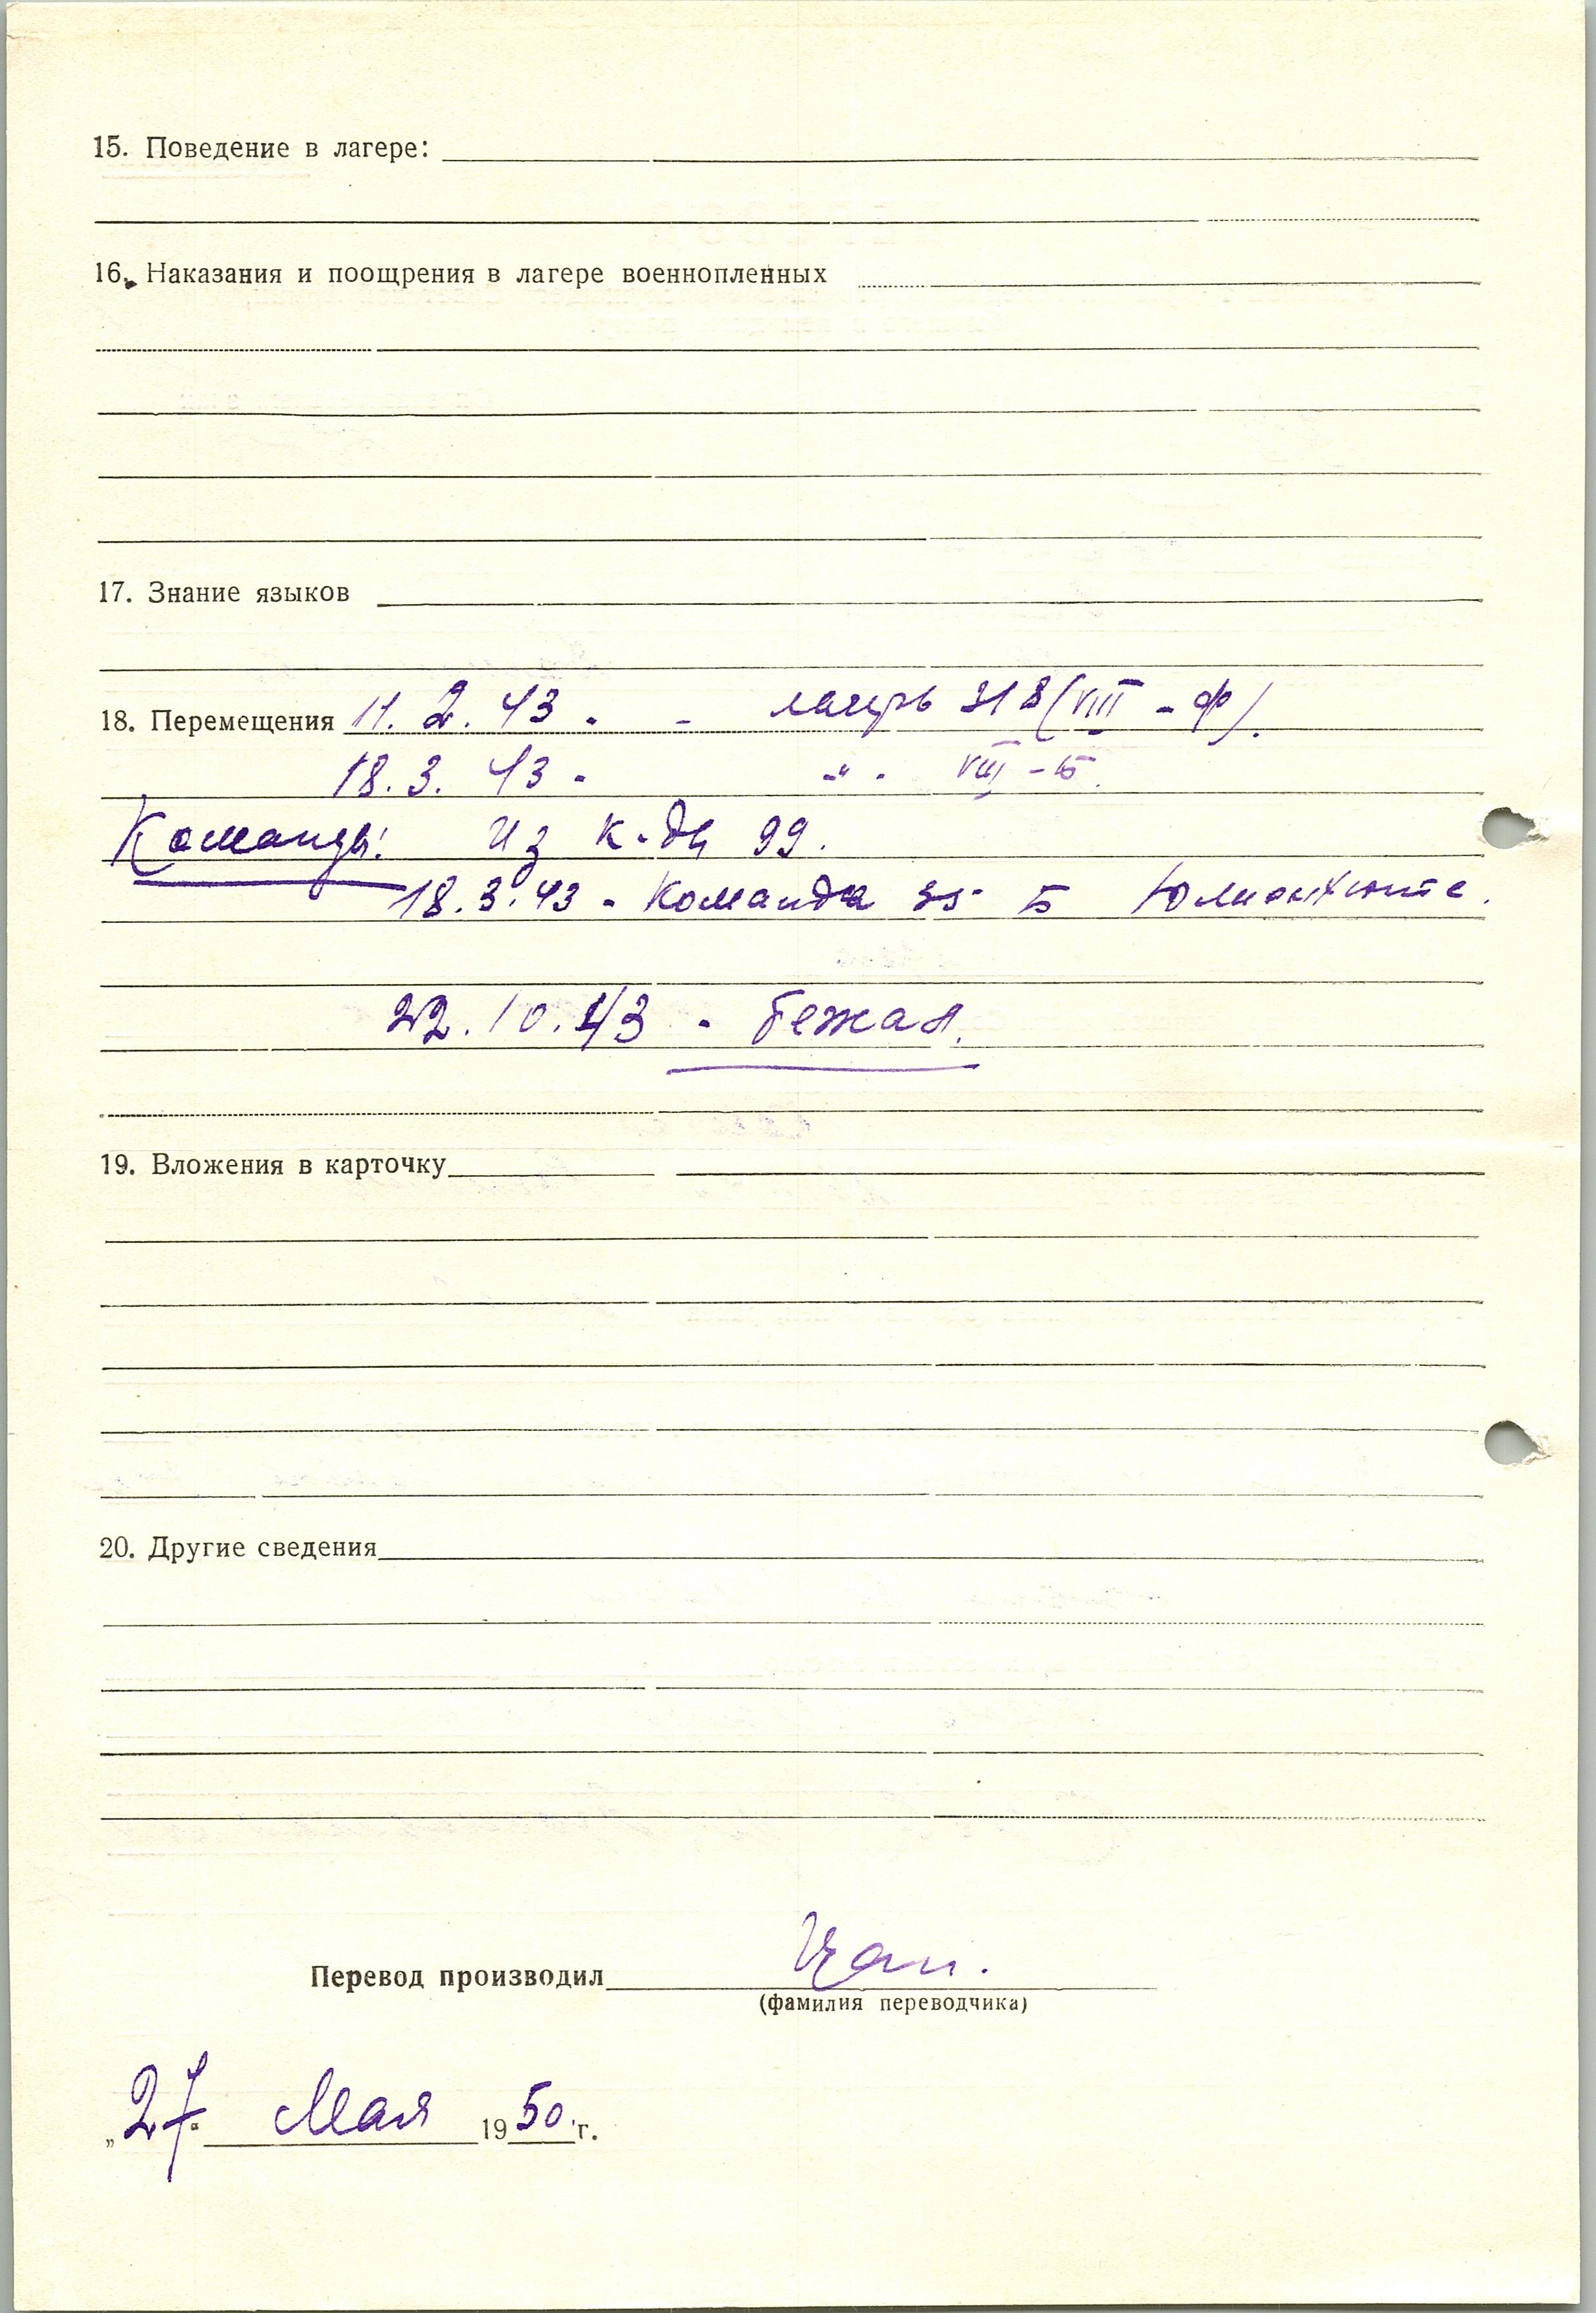 15. Поведение в лагере:
16. Наказания и поощрения в лагере военнопленных
17. Знание языков
18. Перемещения 11. 2. 43 - - лагерь 318 (VIII - Ф).
18. 3. 43 - -"- VIII - Б.
Команды: Из к-ды 99.
18.3.43 - Команда Б
22.10.43 - бежал.
19. Вложения в карточку
20. Другие сведения
Перевод производил
(фамилия переводчика)
„27“ Мая 1950 г.